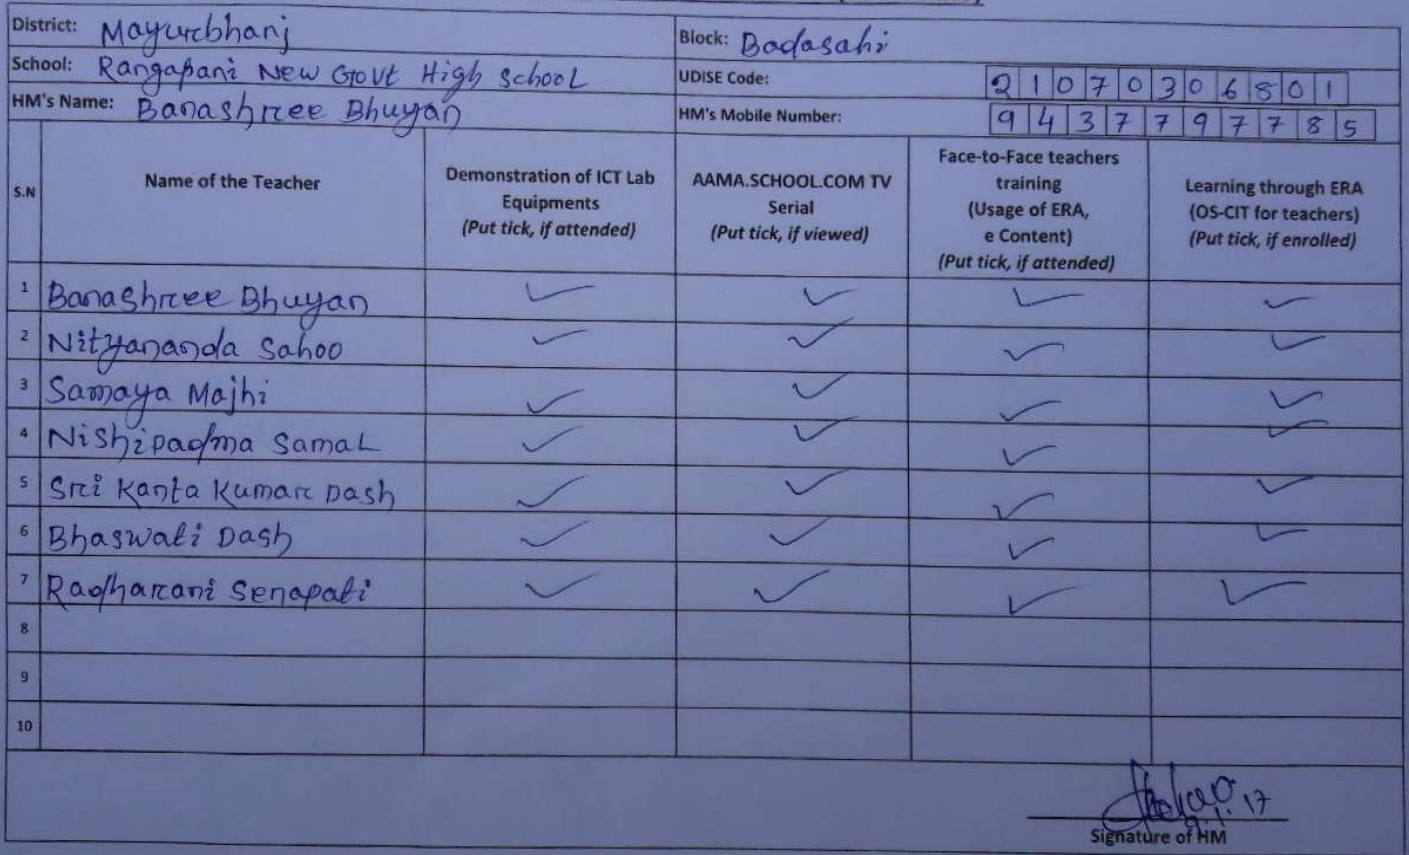 District: Mayurbhanj Block: Badasahi
School: Rangapani New Govt High School UDISE Code: 21070306801
HM's Name: Banashree Bhuyan HM's Mobile Number: 9437797785
S.N Name of the Teacher Demonstration of ICT Lab Equipments (Put tick, if attended) AAMA.SCHOOL.COM TV Serial (Put tick, if viewed) Face-to-Face teachers training (Usage of ERA, e Content) (Put tick, if attended) Learning through ERA (OS-CIT for teachers) (Put tick, if enrolled)
1 Banashree Bhuyan ✓ ✓ ✓ ✓
2 Nityananda Sahoo ✓ ✓ ✓ ✓
3 Samaya Majhi ✓ ✓ ✓ ✓
4 Nishipadma Samal ✓ ✓ ✓ ✓
5 Sri Kanta Kumar Dash ✓ ✓ ✓ ✓
6 Bhaswati Dash ✓ ✓ ✓ ✓
7 Radharani Senapati ✓ ✓ ✓ ✓
8
9
10
9.1.17
Signature of HM